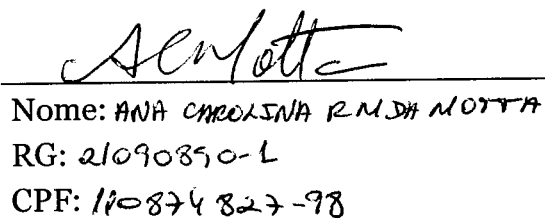 ACMotta
Nome: ANA CAROLINA R M DA MOTTA
RG: 21090890-1
CPF: 110874827-98